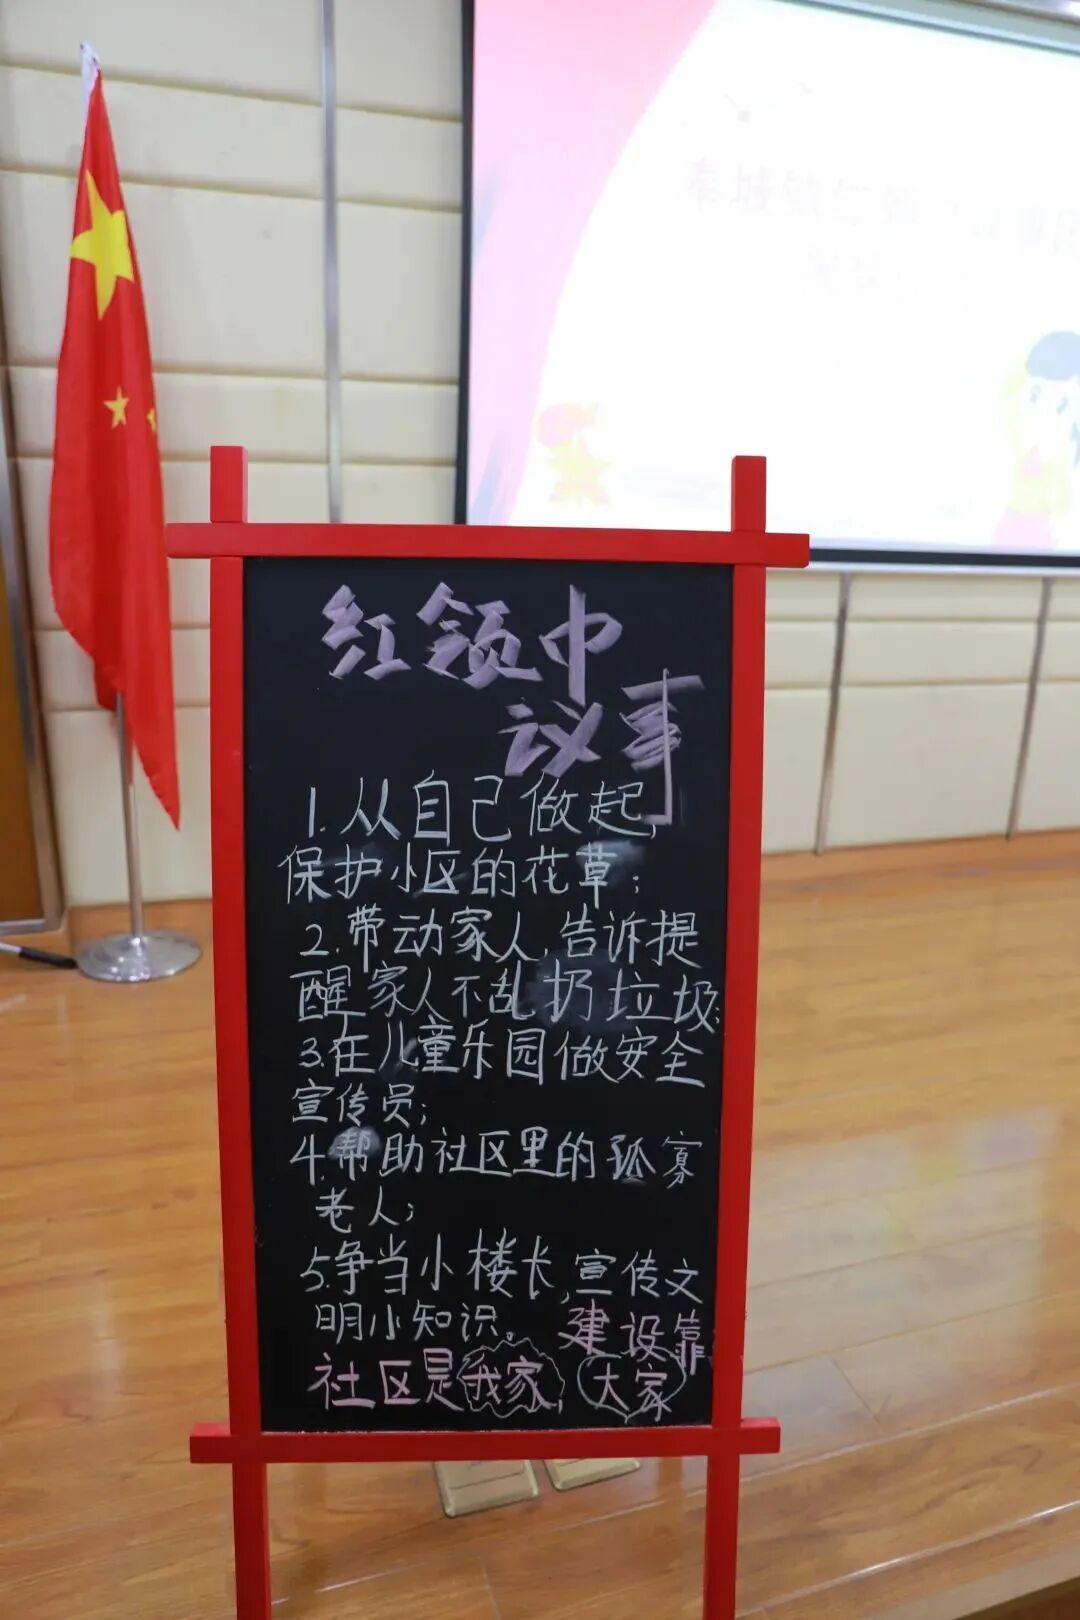 红领巾
议事
1.从自己做起,
保护小区的花草;
2.带动家人,告诉提
醒家人不乱扔垃圾;
3.在儿童乐园做安全
宣传员;
4.帮助社区里的孤寡
老人;
5.争当小楼长,宣传文
明小知识。
社区是我家,建设靠
大家